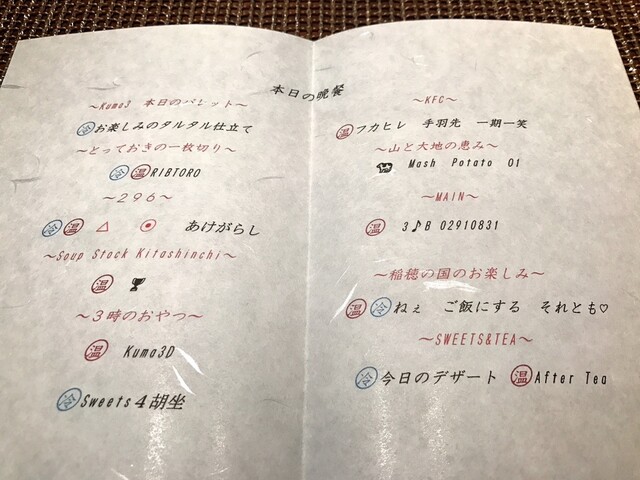 本日の晩餐
～Kuma3 本日のパレット～
冷お楽しみのタルタル仕立て
～とっておきの一枚切り～
冷 温 RIBTORO
～２９６～
冷 温 △ ◉ あけがらし
～Soup Stock Kitashinchi～
温 🏆
～３時のおやつ～
温 Kuma3D
冷Sweets４胡坐
～KFC～
温フカヒレ 手羽先 一期一笑
～山と大地の恵み～
🐄 Mash Potato 01
～MAIN～
温 3♪B 02910831
～稲穂の国のお楽しみ～
温 冷 ねぇ ご飯にする それとも♡
～SWEETS&TEA～
冷今日のデザート 温After Tea